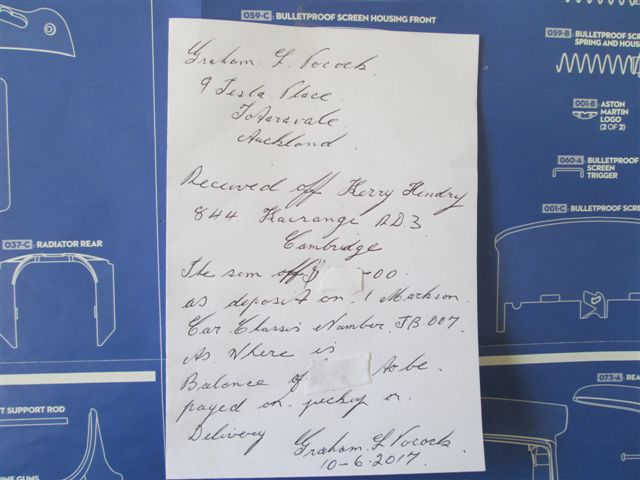 059-C : BULLETPROOF SCREEN HOUSING FRONT
Graham. L. Pocock.
9 Tesla. Place.
Auckland.
Received off Kerry Hendry.
844. Kairangi RD3
Cambridge
The sum off $ -00.
as deposit on. 1 Markson.
Car. Chassis Number. JB.007.
As. Where is
Balance of to be.
payed on. pickup or.
Delivery
Graham. L. Pocock.
10-6-2017.
059-B : BULLETPROOF SCR
SPRING AND HOUS
001-B : ASTON
MARTIN
LOGO
(2 OF 2)
060-A : BULLETPROOF
SCREEN
TRIGGER
001-C : BULLETPROOF SCREE
037-C : RADIATOR REAR
073-A : REA
T SUPPORT ROD
INE GUNS